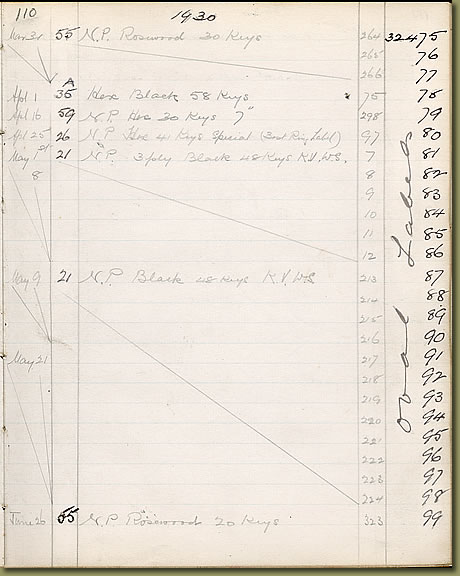 110 1930
Mar 31 55 N.P. Rosewood 30 Keys 264 32475
265 76
266 77
A
Apl 1 35 Hex Black 58 Keys 75 78
Apl 16 59 N.P. Hex 30 Keys 7" 298 79
Apl 25 26 N.P. Hex 41 Keys Special (3rd Ring Label) 97 80
May 1st 21 N.P. 3 ply Black 48 Keys K.V.W.S. 7 81
8 8 82
9 83
10 84
11 85
12 86
May 9 21 N.P. Black 48 Keys K.V.W.S 213 87
214 88
215 89
216 90
May 21 217 91
218 92
219 93
220 94
221 95
222 96
223 97
224 98
June 26 55 N.P. Rosewood 20 Keys 323 99
Oval Labels